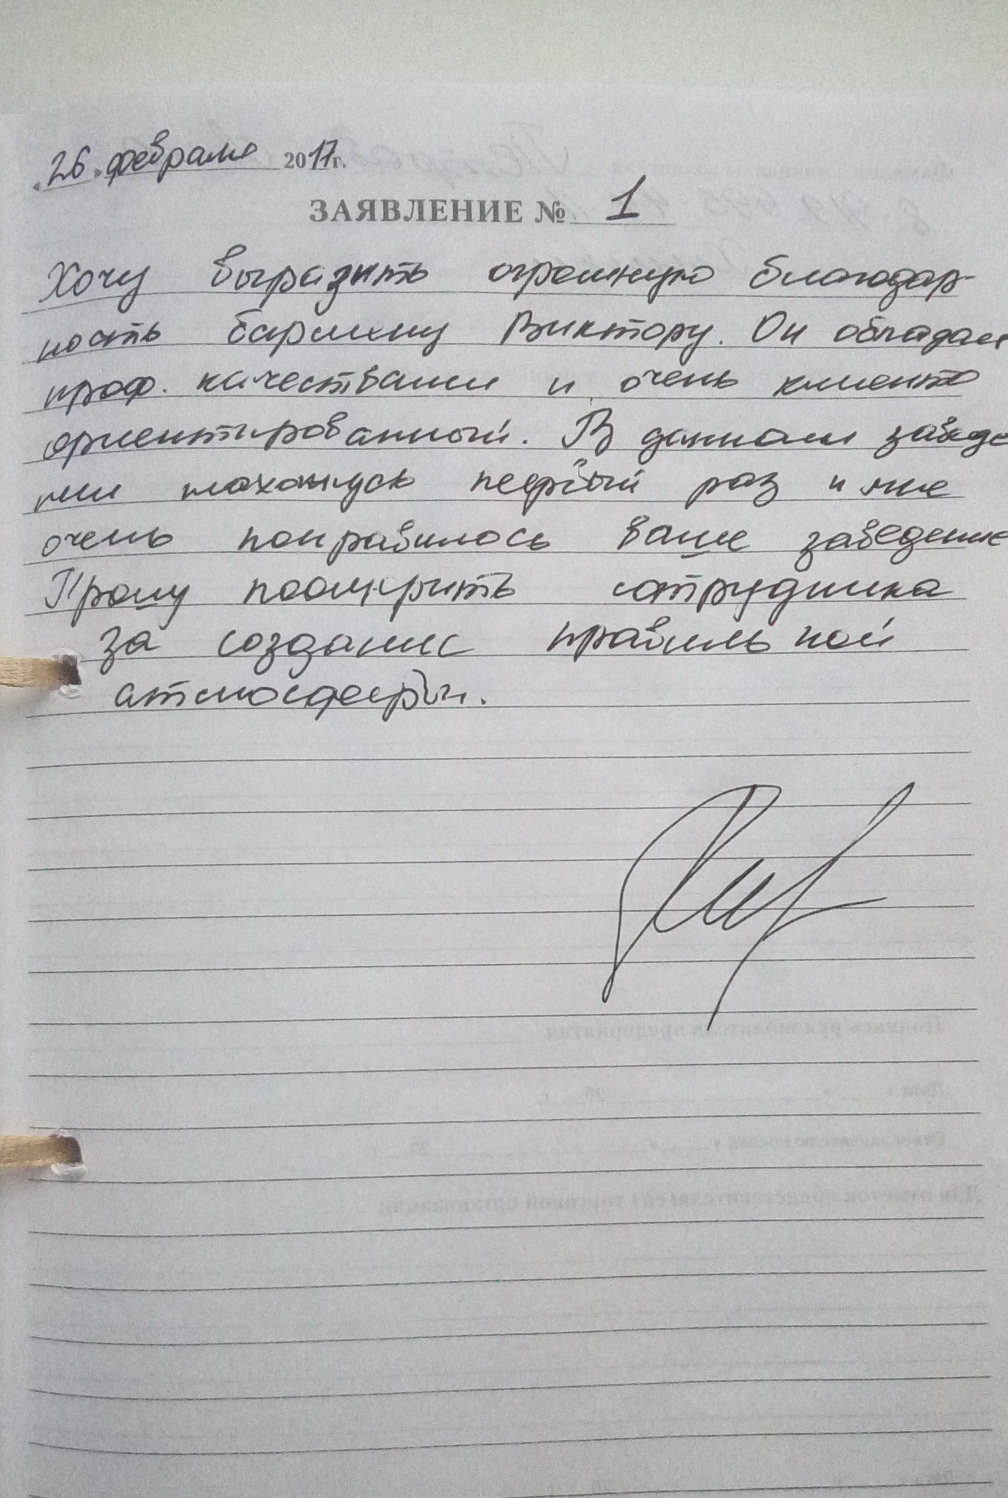 «26» февраля 2017г.
ЗАЯВЛЕНИЕ № 1
Хочу выразить огромную благодар-
ность бармену Виктору. Он обладает
проф. качествами и очень клиенто
ориентированный. В данном заведе
нии нахожусь первый раз и мне
очень понравилось ваше заведение
Прошу поощрить сотрудника
за создание правильной
атмосферы.